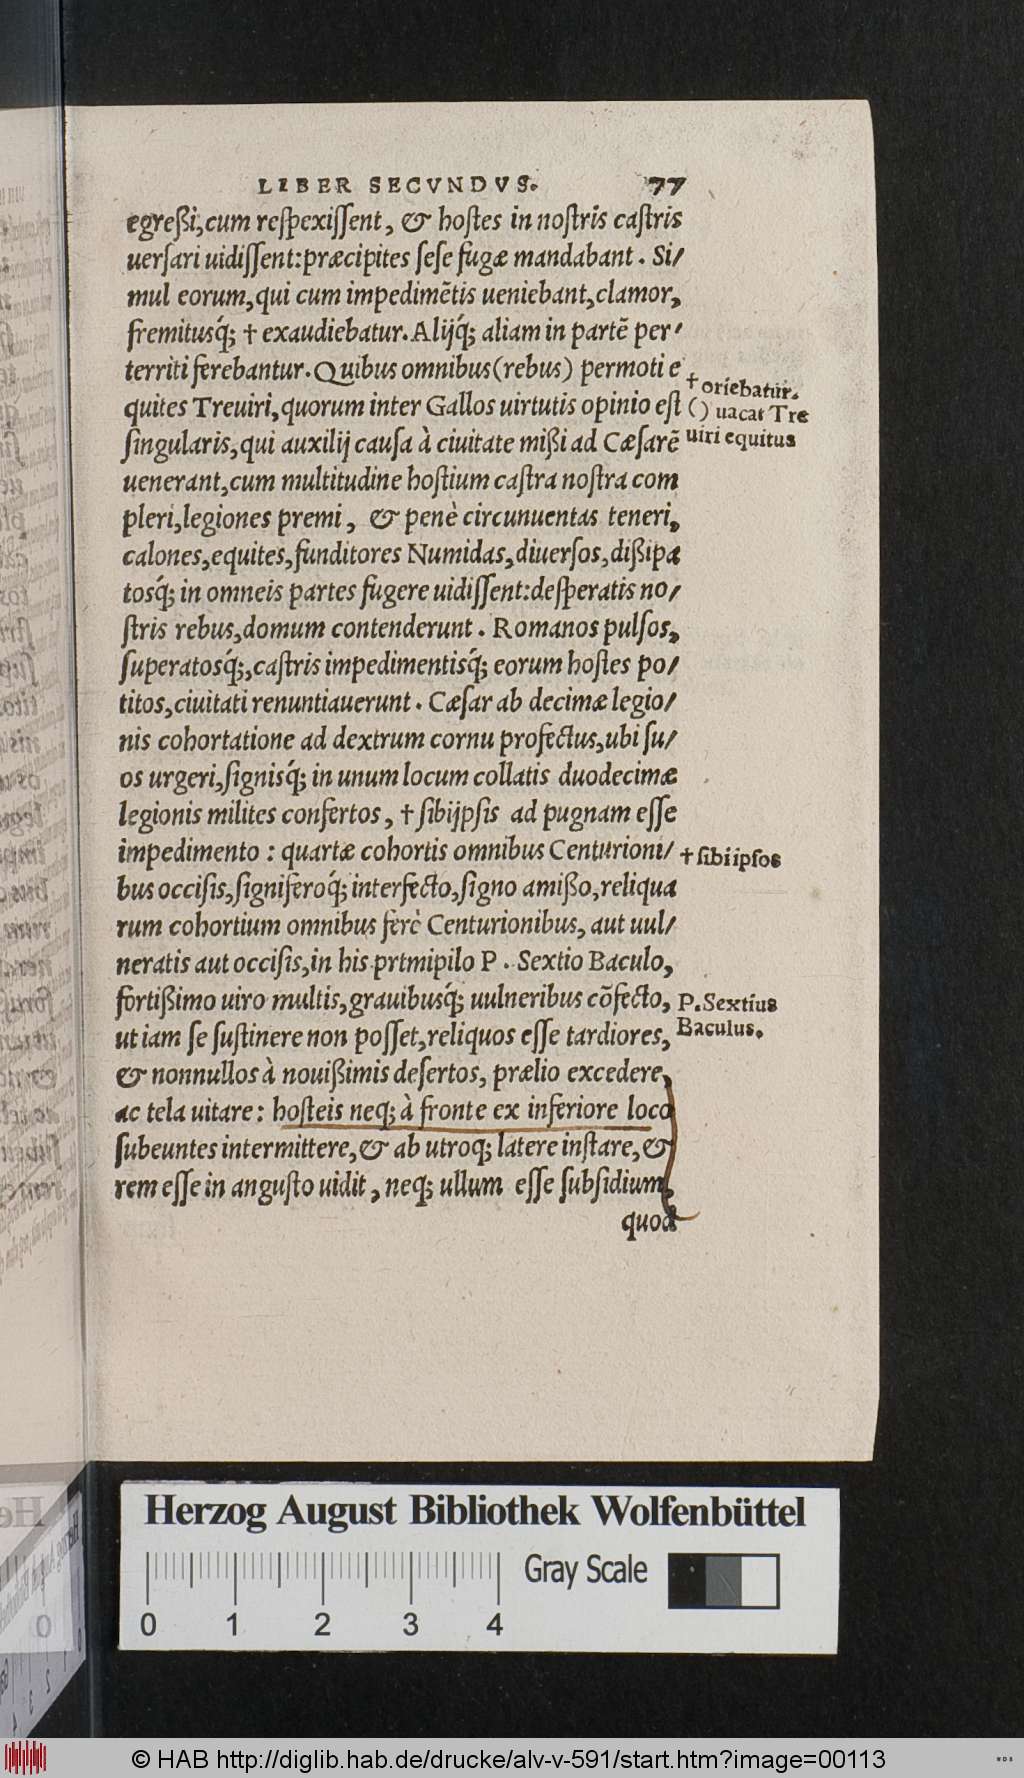 LIBER SECVNDVS. 77
egreßi, cum reſpexiſſent, & hostes in noſtris caſtris
uerſari uidiſſent: præcipites ſeſe fugæ mandabant. Si/
mul eorum, qui cum impedimẽtis ueniebant, clamor,
fremitusq́; † exaudiebatur. Alijq́; aliam in partẽ per/
territi ferebantur. Quibus omnibus (rebus) permoti e
quites Treuiri, quorum inter Gallos uirtutis opinio eſt
ſingularis, qui auxilij cauſa à ciuitate mißi ad Cæſarẽ
uenerant, cum multitudine hoſtium caſtra noſtra com
pleri, legiones premi, & penè circunuentas teneri,
calones, equites, funditores Numidas, diuerſos, dißipa
tosq́; in omneis partes fugere uidiſſent: deſperatis no/
ſtris rebus, domum contenderunt. Romanos pulſos,
ſuperatosq́;, caſtris impedimentisq́; eorum hoſtes po/
titos, ciuitati renuntiauerunt. Cæſar ab decimæ legio/
nis cohortatione ad dextrum cornu profectus, ubi ſu/
os urgeri, ſignisq́; in unum locum collatis duodecimæ
legionis milites confertos, † ſibijpſis ad pugnam eſſe
impedimento: quartæ cohortis omnibus Centurioni/
bus occiſis, ſigniferoq́; interfecto, ſigno amißo, reliqua
rum cohortium omnibus ferè Centurionibus, aut uul/
neratis aut occiſis, in his prtmipilo P. Sextio Baculo,
fortißimo uiro multis, grauibusq́; uulneribus cõfecto,
ut iam ſe ſuſtinere non poſſet, reliquos eſſe tardiores,
& nonnullos à nouißimis deſertos, prælio excedere,
ac tela uitare: hoſteis neq; à fronte ex inferiore loco
ſubeuntes intermittere, & ab utroq; latere inſtare, &
rem eſſe in anguſto uidit, neq; ullum eſſe ſubſidium,
quod
† oriebatur.
() uacat Tre
uiri equitus
† ſibi ipſos
P. Sextius
Baculus.
Herzog August Bibliothek Wolfenbüttel
Gray Scale
0 1 2 3 4
© HAB http://diglib.hab.de/drucke/alv-v-591/start.htm?image=00113